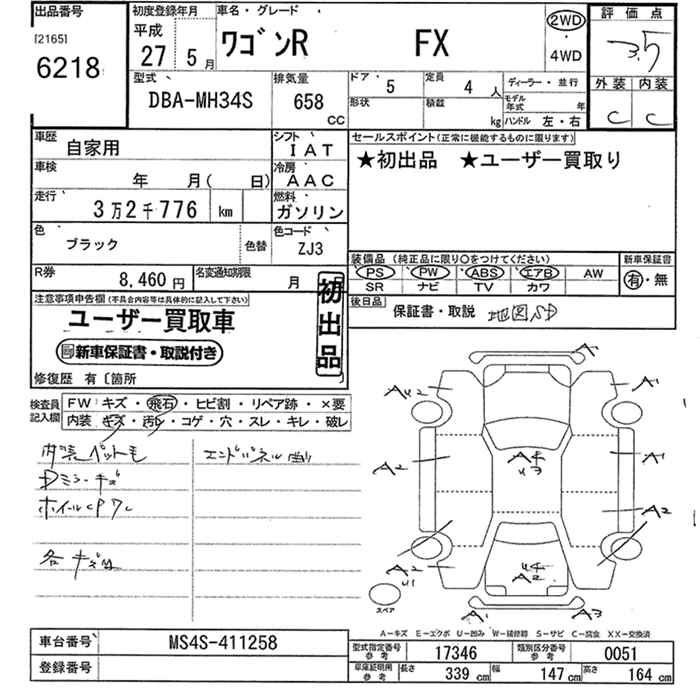 出品番号 初度登録年月 車名・グレード 評価点
[2165] 6218
平成 27 5月 ワゴンR FX 2WD ・ 4WD 3.5
型式 排気量 ドア 5 定員 4人 ディーラー・並行 外装 内装
DBA-MH34S 658 CC 形状 積載 kg モデル年式 年 C C
ハンドル 左・右
車歴 自家用 シフト IAT セールスポイント(正常に機能するものに限ります)
★初出品 ★ユーザー買取り
車検 年 月( 日) 冷房 AAC
走行 3万2千776 km 燃料 ガソリン
色 ブラック 色替 色コード ZJ3
装備品(純正品に限り○をつけてください) 新車保証書
PS PW ABS エアB AW 有・無
SR ナビ TV カワ
R券 8,460円 名変通知期限 月
後日品 保証書・取説 地図SD
注意事項申告欄(不具合内容等は具体的に記入して下さい)
初出品
ユーザー買取車
新車保証書・取説付き
修復歴 有〔箇所
検査員記入欄 FW:キズ・飛石・ヒビ割・リペア跡・×要
内装:キズ・汚レ・コゲ・穴・スレ・キレ・破レ
内装ペット毛 エンドパネル曲り
Dミラーキズ
ホイルCP
各キズ
A1
A U2 A1
A2 A4 U3 A1
A2
A2 U1 U4 A2
スペア A1 A3
A-キズ E-エクボ U-凹み W-補修跡 S-サビ C-腐食 XX-交換済
車台番号 MS4S-411258 型式指定番号 参考 17346 類別区分番号 参考 0051
登録番号 車庫証明用 参考 長さ 339 cm 幅 147 cm 高さ 164 cm